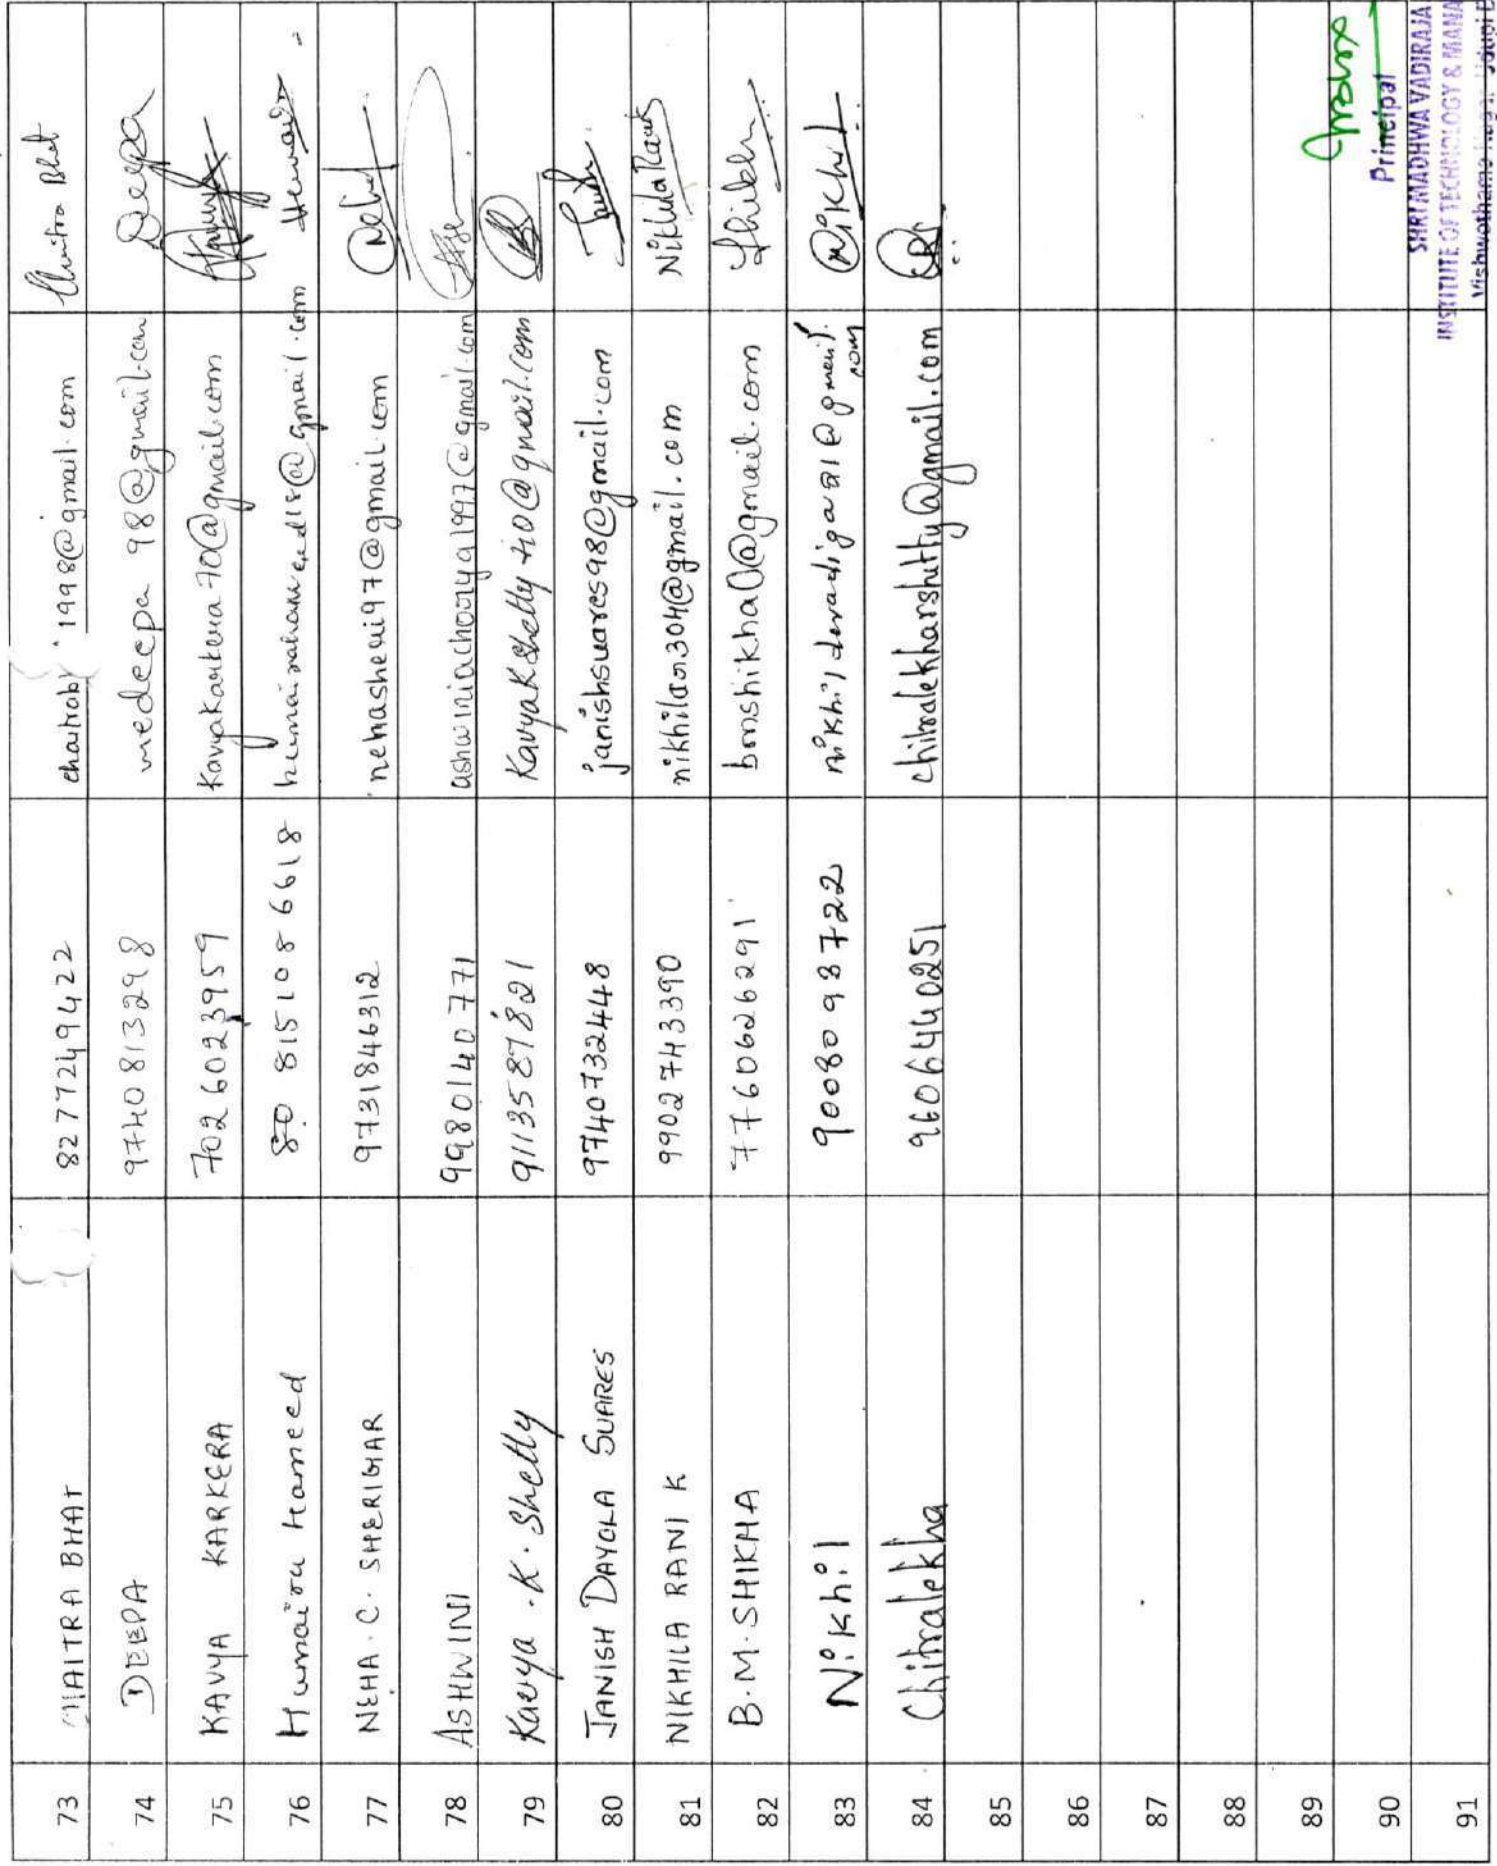 73 MAITRA BHAT 8277249422 chaitrab 1998@gmail.com Chaitra Bhat
74 DEEPA 9740813298 medeepa98@gmail.com Deepa
75 KAVYA KARKERA 7026023959 Kavyakarkera70@gmail.com
76 Humaira Hameed 80 8151086618 humairahameed18@gmail.com Humaira
77 NEHA.C. SHERIGAR 9731846312 nehasheri97@gmail.com Neha
78 ASHWINI 9980140771 ashwiniachorya1997@gmail.com
79 Kavya.K.Shetty 9113587821 KavyaKShetty410@gmail.com
80 JANISH DAYOLA SUARES 9740732448 janishsuares98@gmail.com
81 NIKHILA RANI K 9902743390 nikhilan304@gmail.com Nikhila Rani K
82 B.M.SHIKHA 7760626291 bmshikha0@gmail.com Shikha
83 Nikhil 9008098722 nikhildevadiga221@gmail.com Nikhil
84 Chitralekha 9606440251 chitralekharshetty@gmail.com
85
86
87
88
89
90
91
Principal
SHRI MADHWA VADIRAJA
INSTITUTE OF TECHNOLOGY & MANA
Vishwothama Nagar Udupi